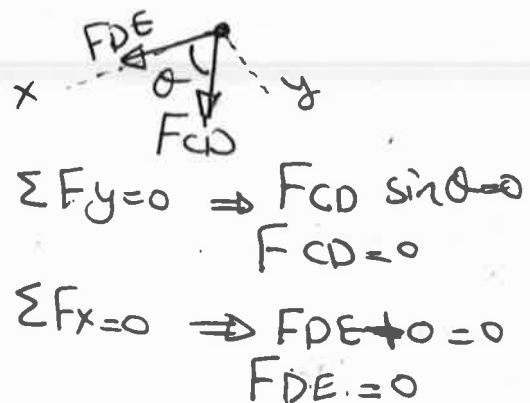 FDE
θ
x
y
FCD
ΣFy=0 ⇒ FCD sinθ=0
FCD=0
ΣFx=0 ⇒ FDE+0=0
FDE.=0